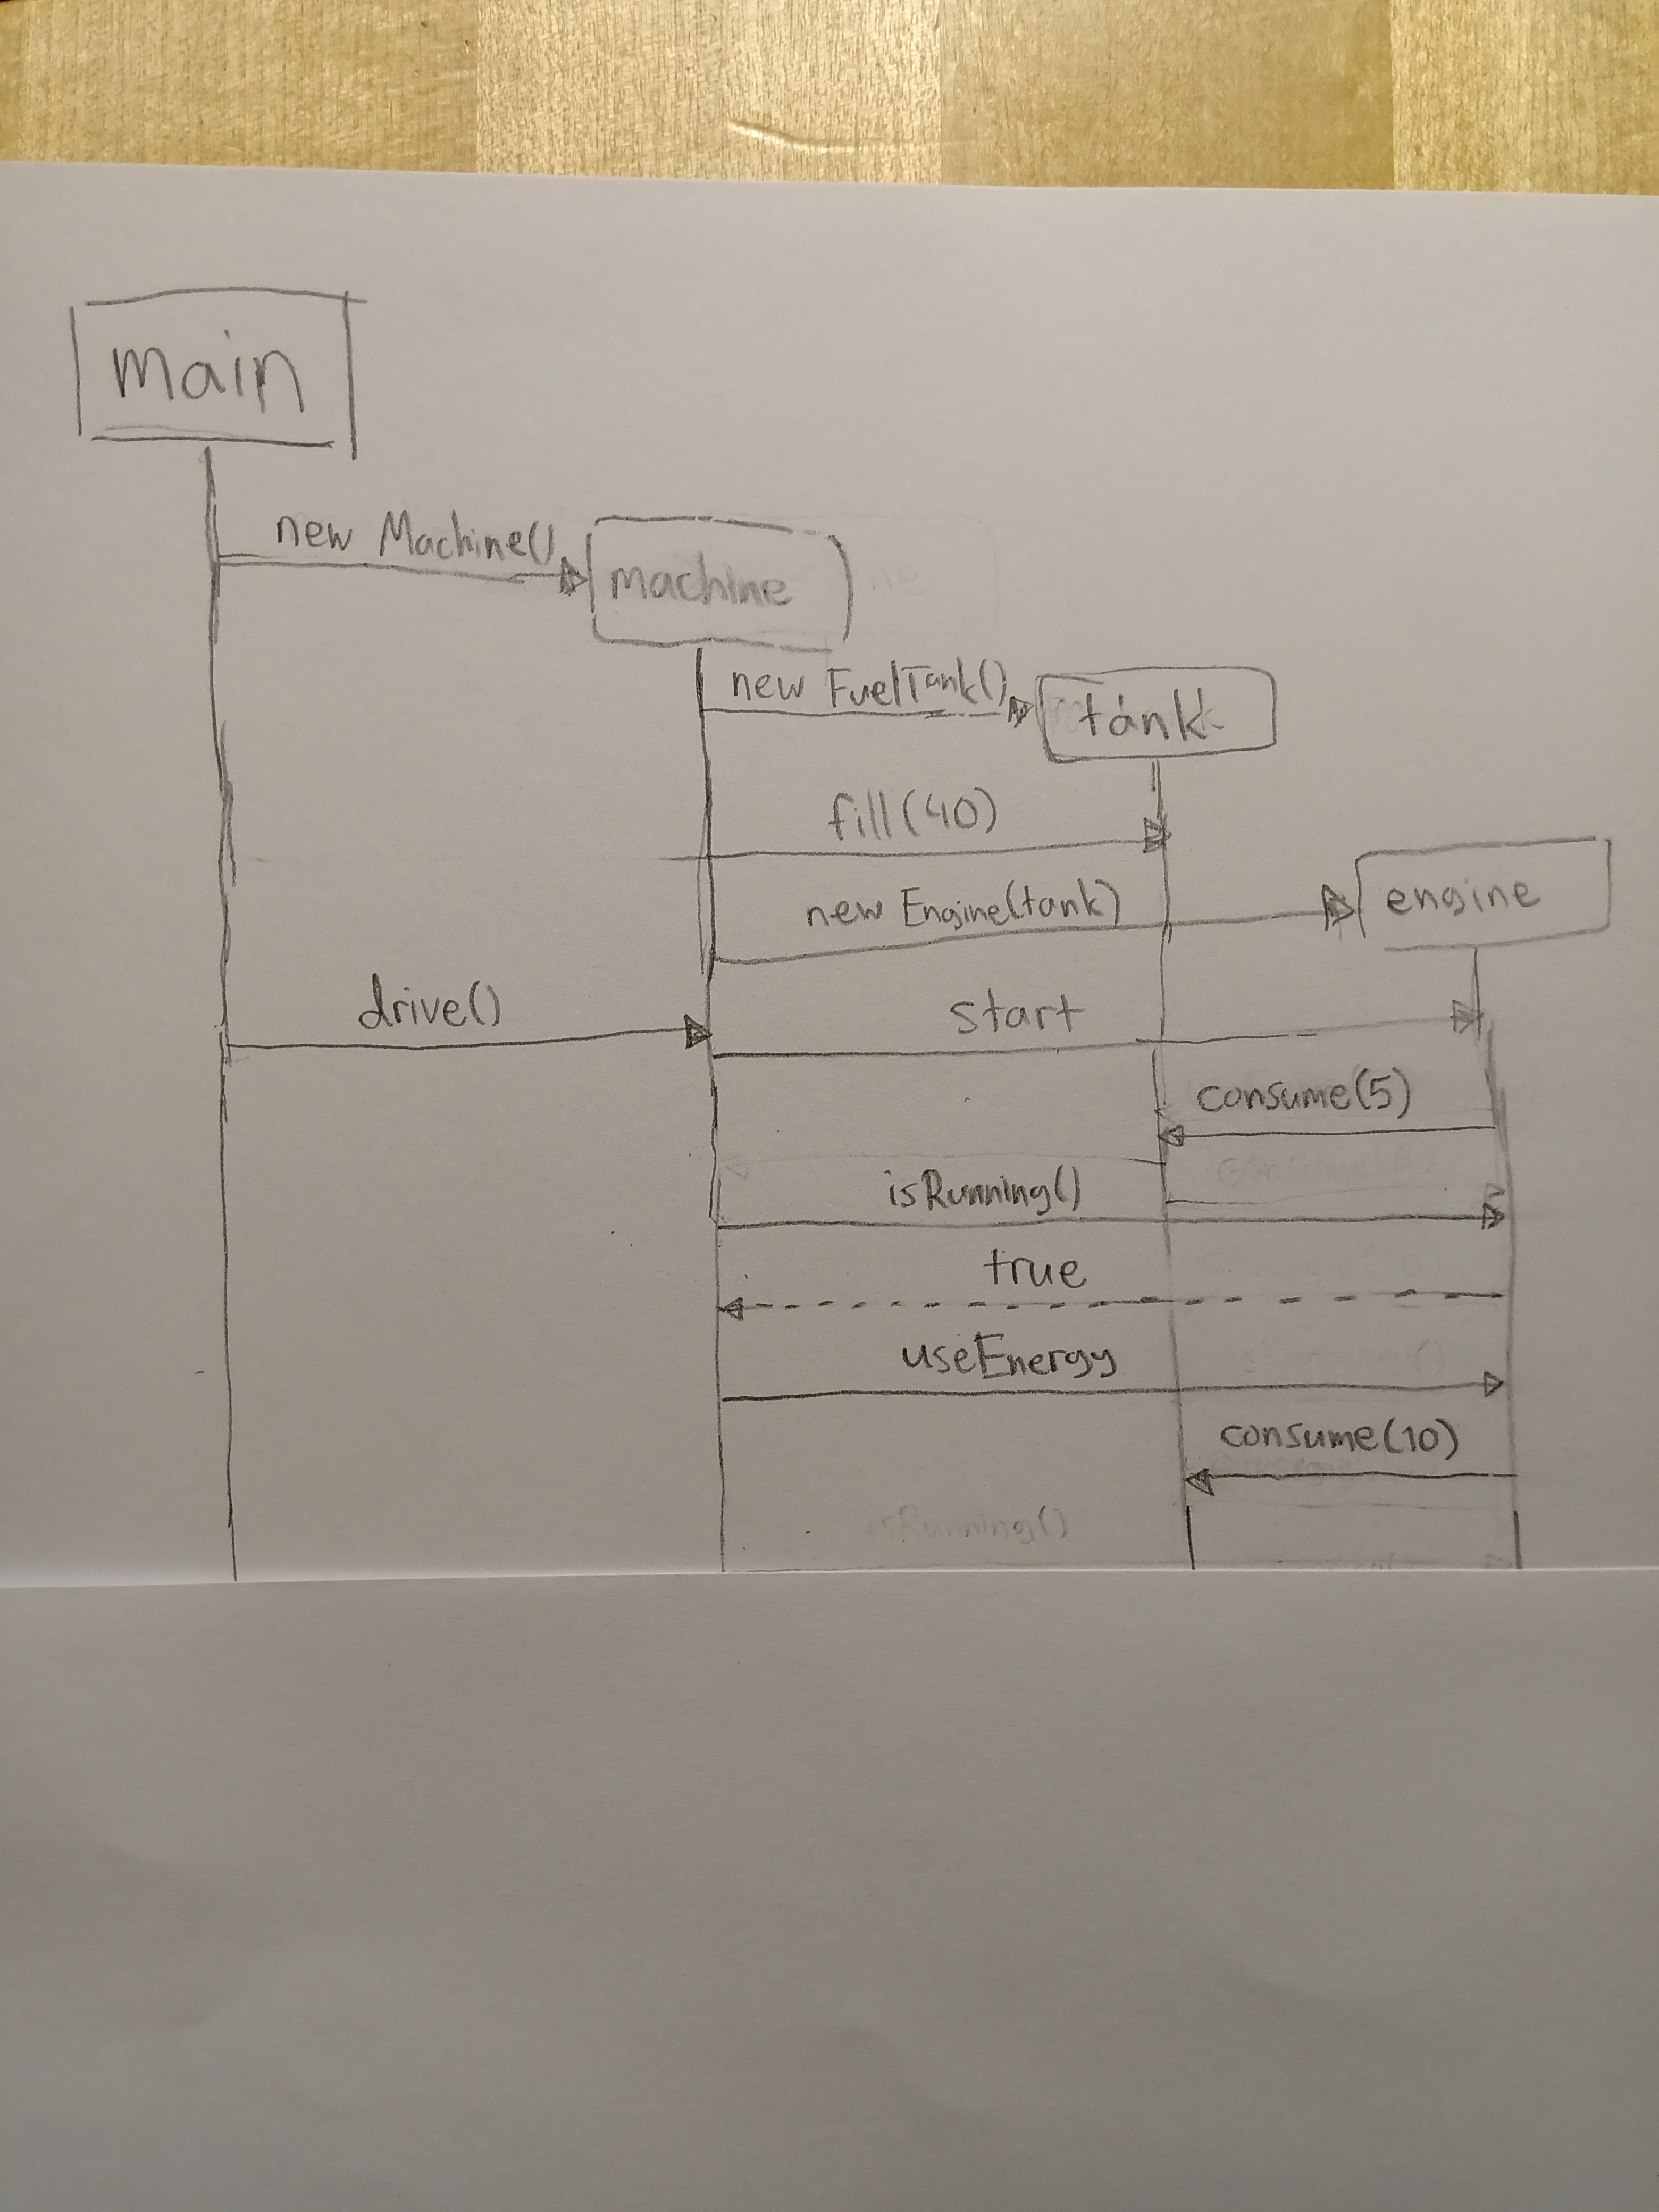 main
new Machine()
machine
new FuelTank()
tank
fill(40)
new Engine(tank)
engine
drive()
start
consume(5)
isRunning()
true
useEnergy
consume(10)
isRunning()